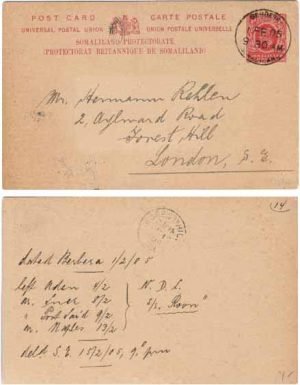 POST CARD
CARTE POSTALE
UNIVERSAL POSTAL UNION
UNION POSTALE UNIVERSELLE
SOMALILAND PROTECTORATE
(PROTECTORAT BRITANNIQUE DE SOMALILAND)
BERBERA
FE 05
Mr. Hermann Rehlen
2, Aylward Road
Forest Hill
London, S.E.
14
dated Berbera 1/2/05
left Aden 4/2
ar. Suez 8/2
" Port Said 9/2
ar. Naples 13/2
N.D.L.
s/s "Roon"
deld S.E. 15/2/05, 9 pm